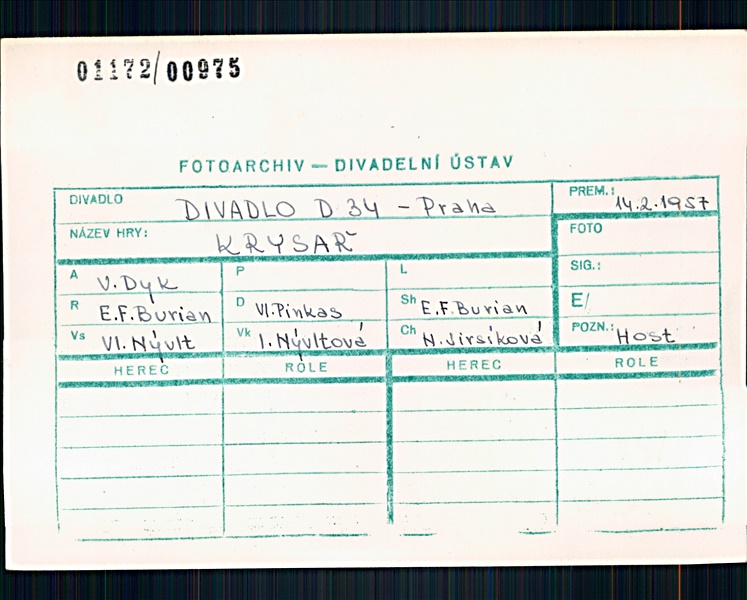 01172/00975
FOTOARCHIV — DIVADELNÍ ÚSTAV
DIVADLO DIVADLO D 34 - Praha PREM.: 14.2.1957
NÁZEV HRY: KRYSAŘ FOTO
A V. Dyk P L SIG.:
R E.F. Burian D Vl. Pinkas Sh E.F. Burian E/
Vs Vl. Nývlt Vk I. Nývltová Ch N. Jirsíková POZN.: Host
HEREC ROLE HEREC ROLE